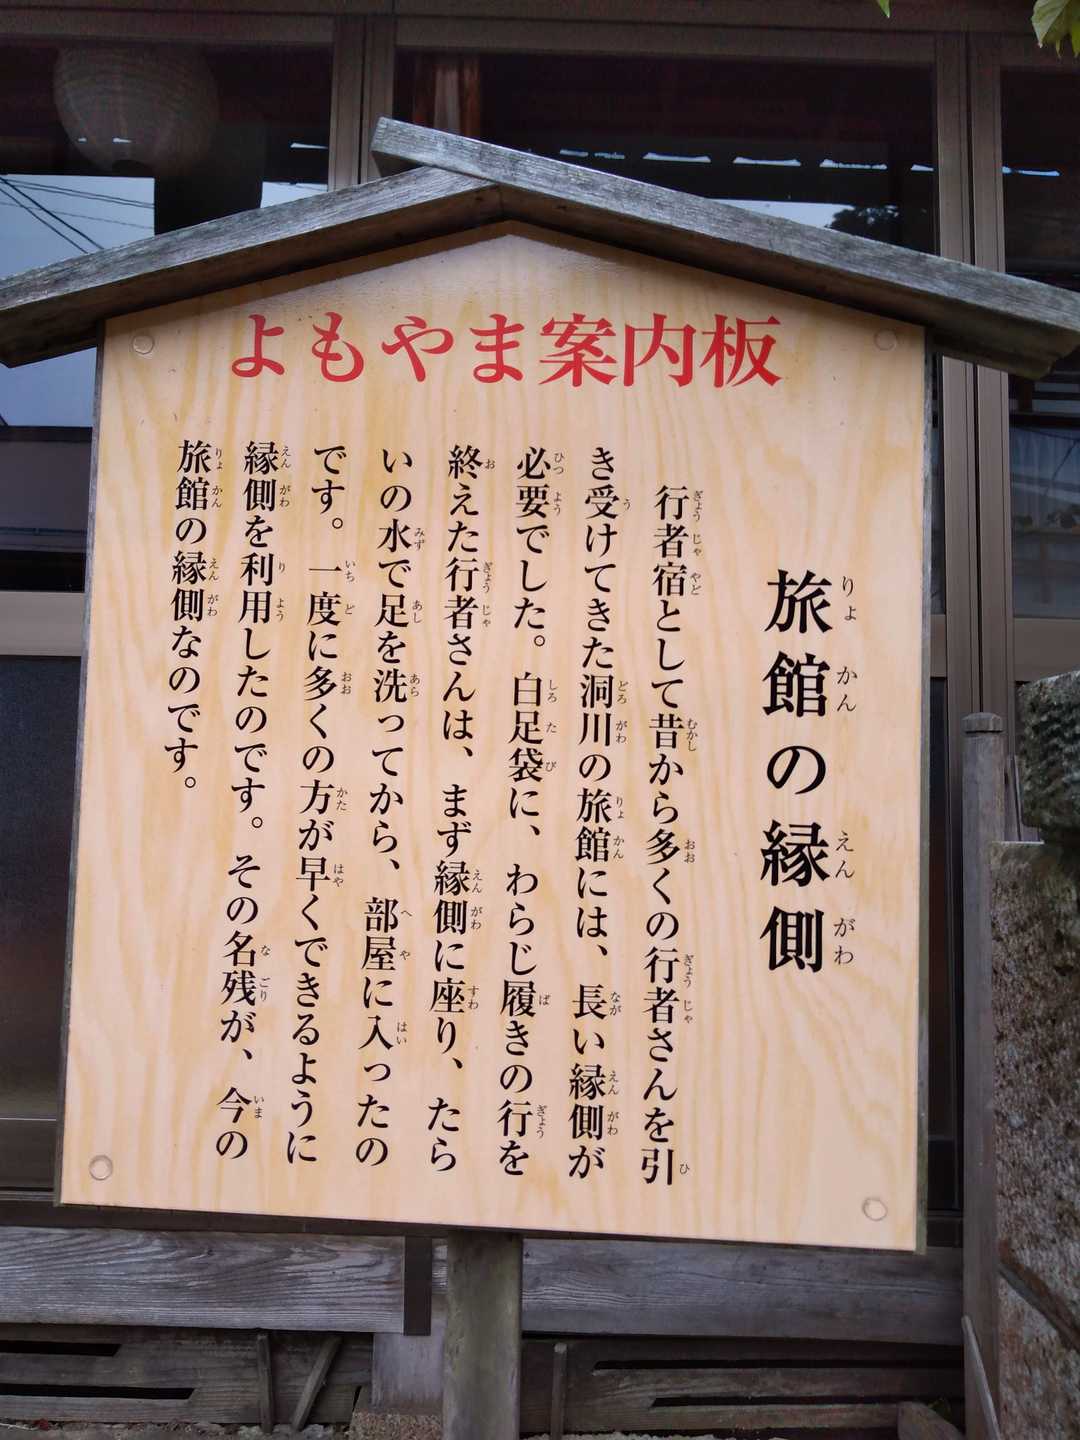 よもやま案内板
旅館の縁側
りょかんのえんがわ
行者宿として昔から多くの行者さんを引
き受けてきた洞川の旅館には、長い縁側が
必要でした。白足袋に、わらじ履きの行を
終えた行者さんは、まず縁側に座り、たら
いの水で足を洗ってから、部屋に入ったの
です。一度に多くの方が早くできるように
縁側を利用したのです。その名残が、今の
旅館の縁側なのです。